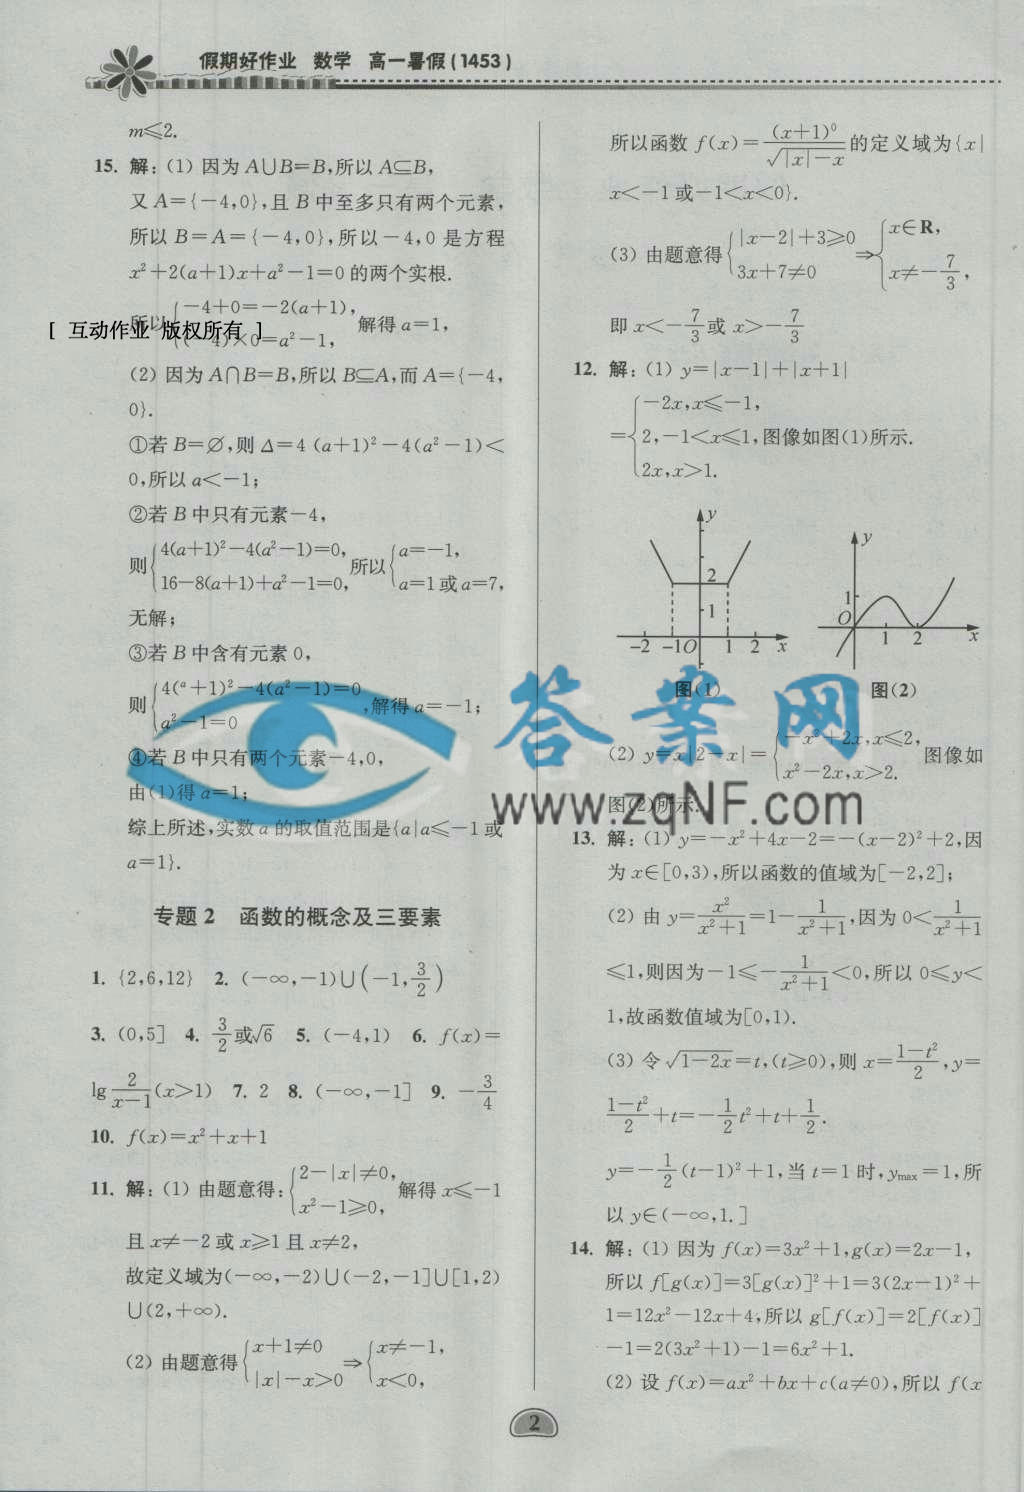 假期好作业 数学 高一暑假(1453)
m≤2.
15. 解:(1) 因为 A∪B=B,所以 A⊆B,
又 A={-4,0},且 B 中至多只有两个元素,
所以 B=A={-4,0},所以-4,0 是方程
x²+2(a+1)x+a²-1=0 的两个实根.
所以{-4+0=-2(a+1),
(-4)×0=a²-1, 解得 a=1,
[ 互动作业 版权所有 ]
(2) 因为 A∩B=B,所以 B⊆A,而 A={-4,
0}.
①若 B=∅,则 Δ=4 (a+1)²-4(a²-1)<
0,所以 a<-1;
②若 B 中只有元素-4,
则{4(a+1)²-4(a²-1)=0,
16-8(a+1)+a²-1=0, 所以{a=-1,
a=1 或 a=7,
无解;
③若 B 中含有元素 0,
则{4(a+1)²-4(a²-1)=0
a²-1=0 ,解得 a=-1;
④若 B 中只有两个元素-4,0,
由(1)得 a=1;
综上所述,实数 a 的取值范围是{a|a≤-1 或
a=1}.
专题 2 函数的概念及三要素
1. {2,6,12} 2. (-∞,-1)∪(-1,3/2)
3. (0,5] 4. 3/2或√6 5. (-4,1) 6. f(x)=
lg 2/(x-1)(x>1) 7. 2 8. (-∞,-1] 9. -3/4
10. f(x)=x²+x+1
11. 解:(1) 由题意得:{2-|x|≠0,
x²-1≥0, 解得 x≤-1
且 x≠-2 或 x≥1 且 x≠2,
故定义域为(-∞,-2)∪(-2,-1]∪[1,2)
∪(2,+∞).
(2) 由题意得{x+1≠0
|x|-x>0 ⇒{x≠-1,
x<0,
所以函数 f(x)=(x+1)⁰/√(|x|-x) 的定义域为{x|
x<-1 或-1<x<0}.
(3) 由题意得{|x-2|+3≥0
3x+7≠0 ⇒{x∈R,
x≠-7/3,
即 x<-7/3 或 x>-7/3
12. 解:(1) y=|x-1|+|x+1|
={-2x,x≤-1,
2,-1<x≤1,图像如图(1)所示.
2x,x>1.
y
2
1
-2 -1 O 1 2 x
图(1)
y
1
O
1 2 x
图(2)
(2) y=x|2-x|={-x²+2x,x≤2,
x²-2x,x>2. 图像如
图(2)所示.
13. 解:(1) y=-x²+4x-2=-(x-2)²+2,因
为 x∈[0,3),所以函数的值域为[-2,2];
(2) 由 y=x²/(x²+1)=1-1/(x²+1),因为 0<1/(x²+1)
≤1,则因为-1≤-1/(x²+1)<0,所以 0≤y<
1,故函数值域为[0,1).
(3) 令√(1-2x)=t,(t≥0),则 x=(1-t²)/2,y=
(1-t²)/2+t=-1/2t²+t+1/2.
y=-1/2(t-1)²+1,当 t=1 时,ymax=1,所
以 y∈(-∞,1.]
14. 解:(1) 因为 f(x)=3x²+1,g(x)=2x-1,
所以 f[g(x)]=3[g(x)]²+1=3(2x-1)²+
1=12x²-12x+4,所以 g[f(x)]=2[f(x)]
-1=2(3x²+1)-1=6x²+1.
(2) 设 f(x)=ax²+bx+c(a≠0),所以 f(x
答案网
www.zqNF.com
2